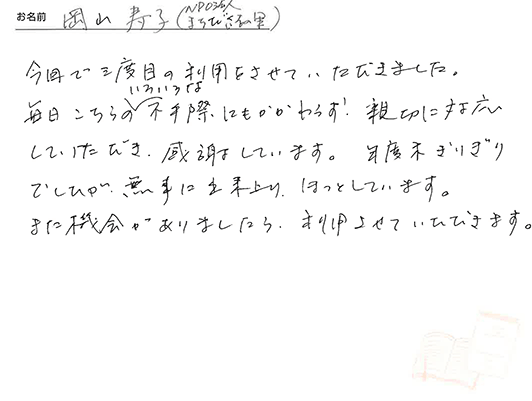 お名前 岡山 寿子 (NPO法人
いろいろな
今回で三度目の利用をさせていただきました。
毎日こちらの不手際にもかかわらず、親切に対応
していただき、感謝しています。年度末ぎりぎり
でしたが、無事に出来上り、ほっとしています。
また機会がありましたら、利用させていただきます。